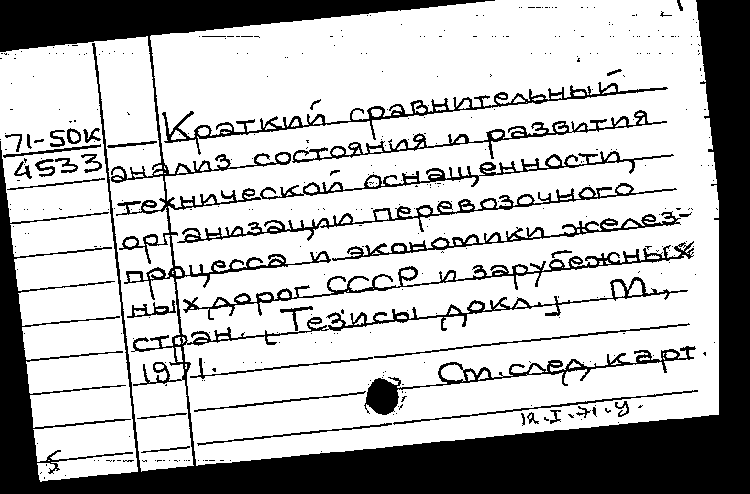 71-50к
4533
Краткий сравнительный
анализ состояния и развития
технической оснащенности,
организации перевозочного
процесса и экономики желез-
ных дорог СССР и зарубежных
стран. [Тезисы докл.]. М.,
1971.
См. след. карт.
5